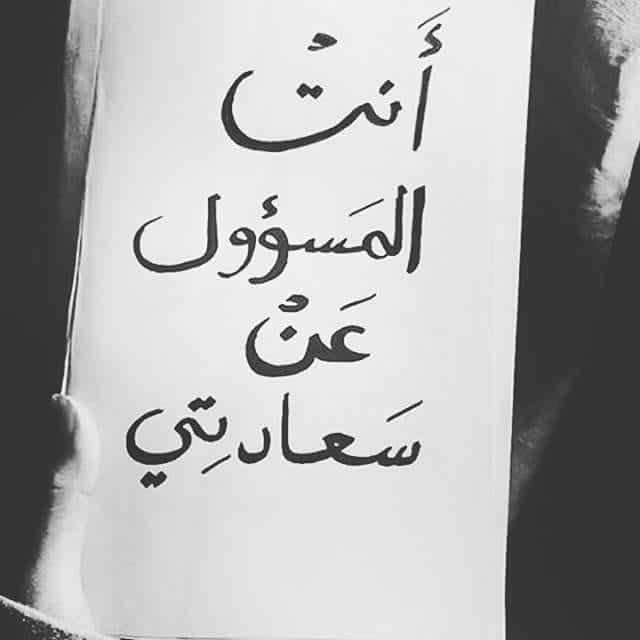 أَنتْ
المَسؤول
عَنْ
سَعادتِي